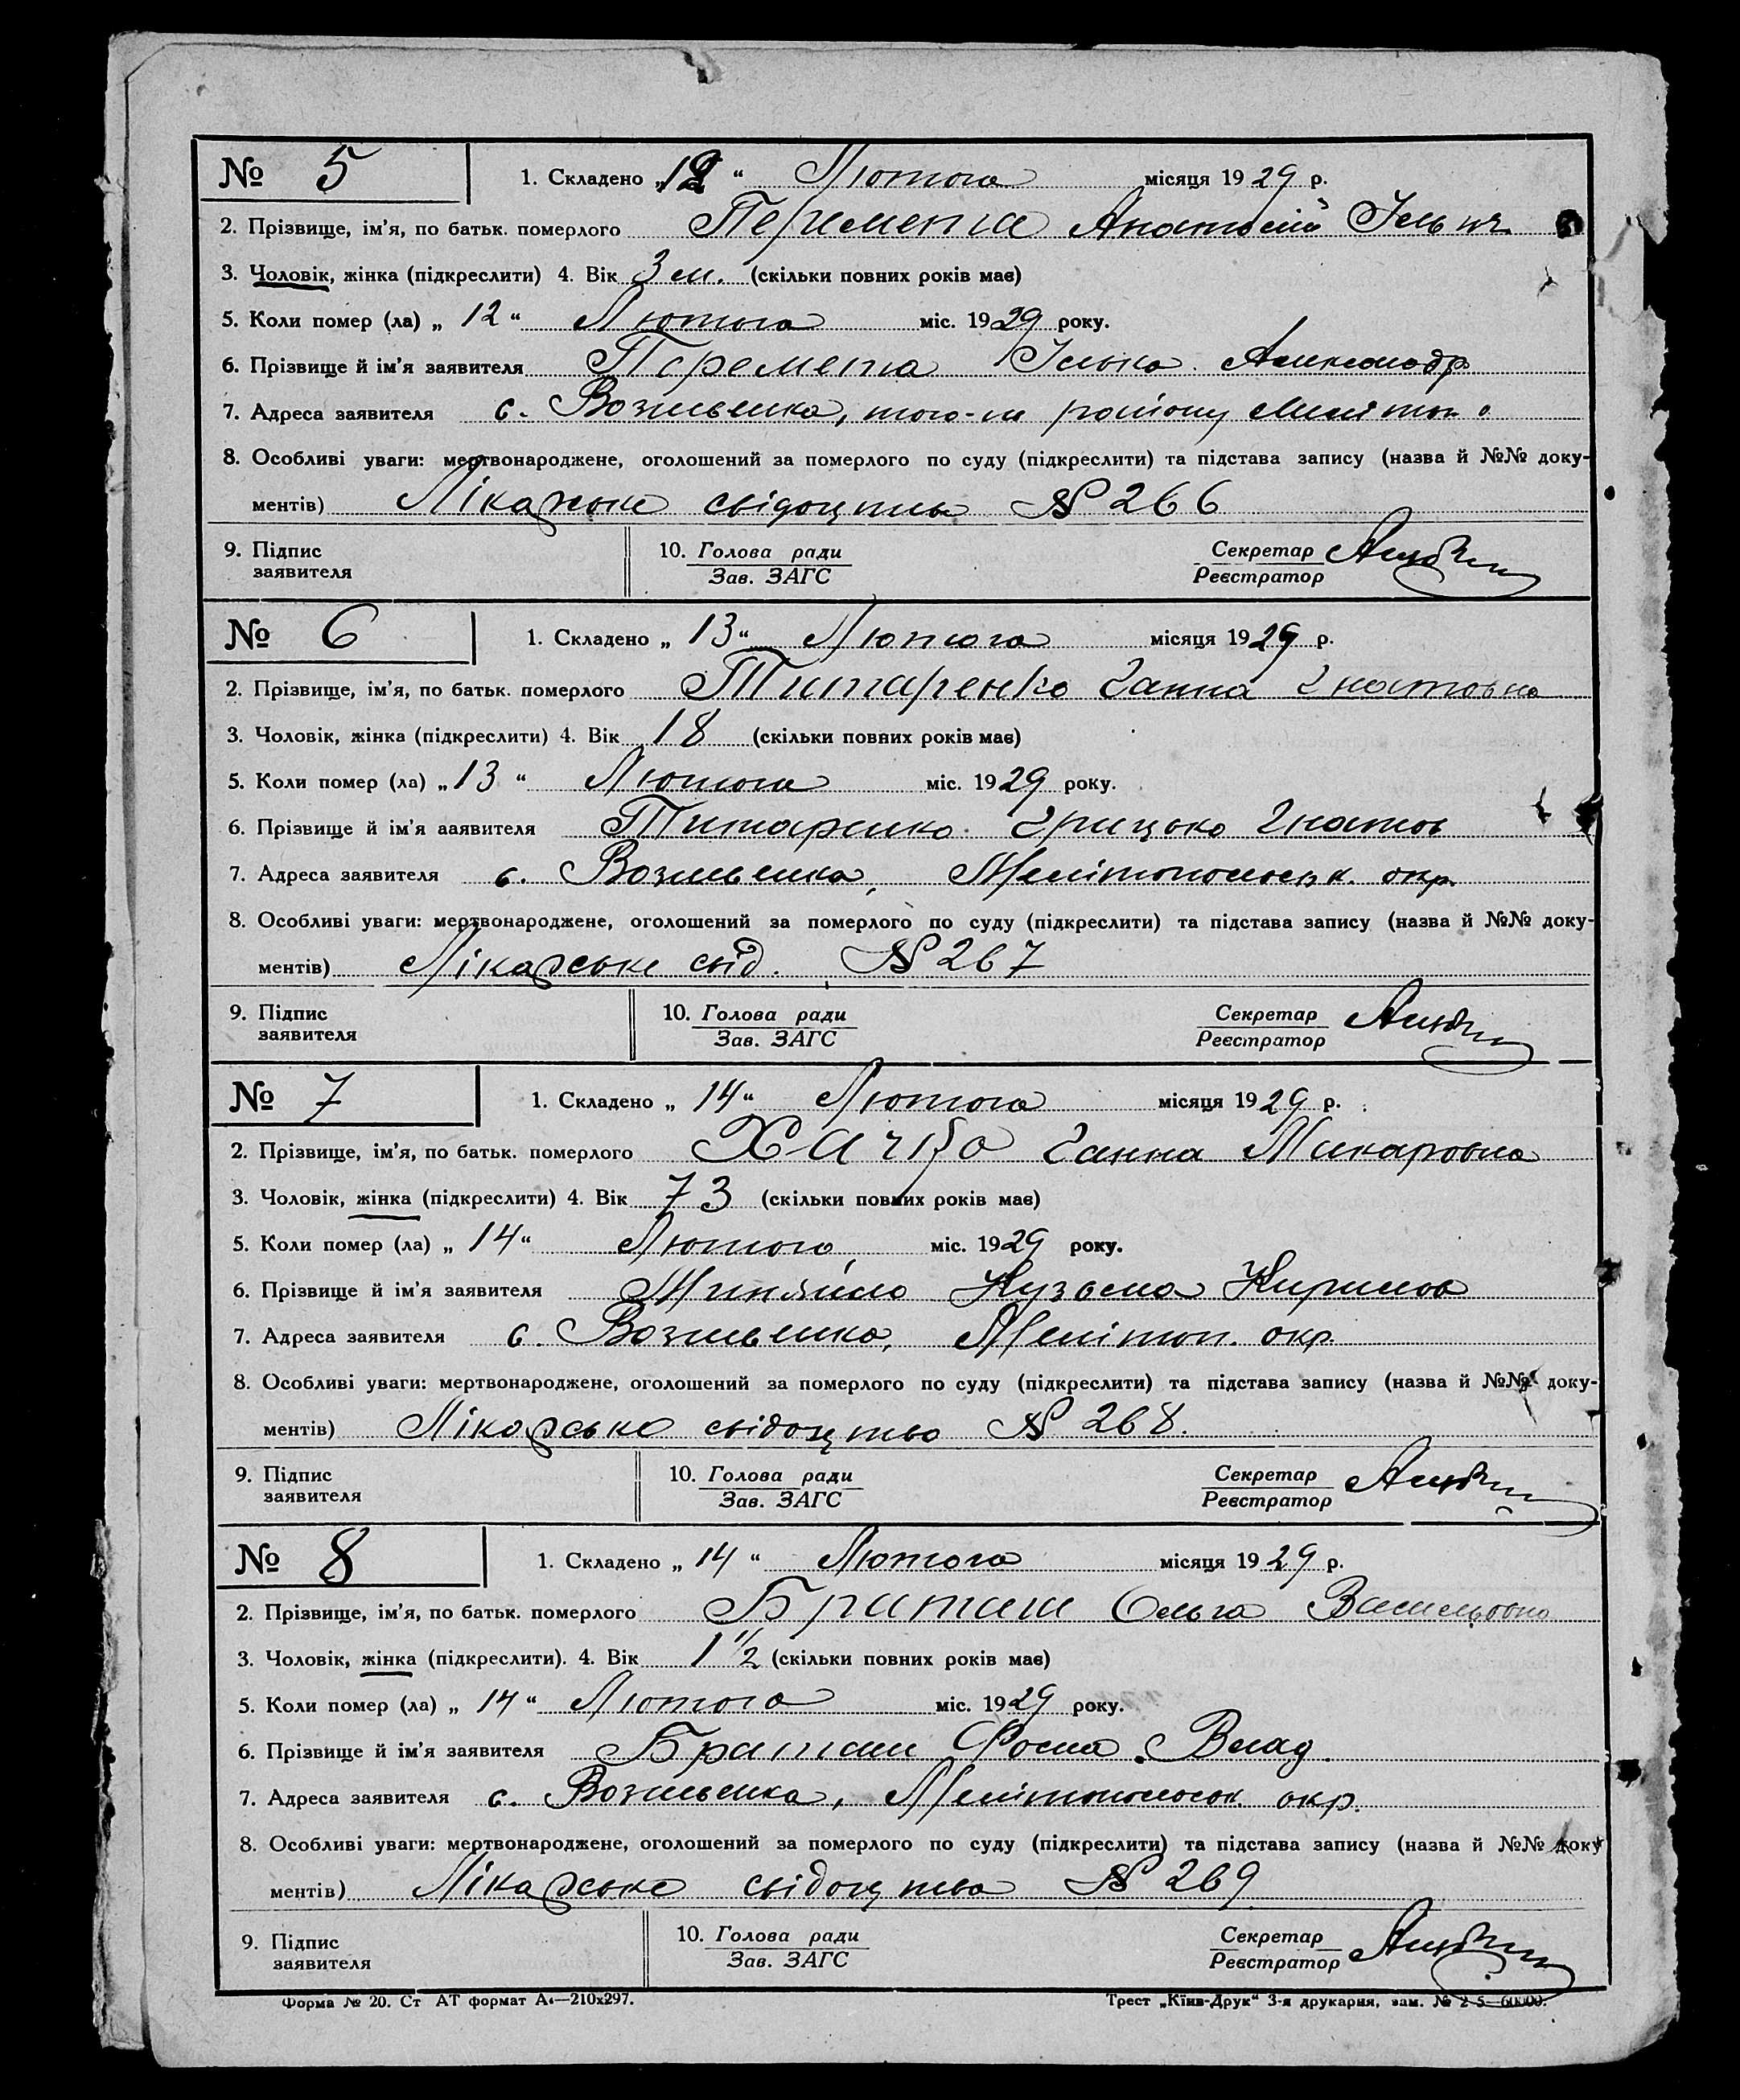 № 5 1. Складено „12“ Лютого місяця 1929 р.
2. Прізвище, ім'я, по батьк. померлого Перемета Анатолій Ільич
3. Чоловік, жінка (підкреслити) 4. Вік 3 м. (скільки повних років має)
5. Коли помер (ла) „12“ Лютого міс. 1929 року.
6. Прізвище й ім'я заявителя Перемета Ілько Александр
7. Адреса заявителя с. Вознесенка, того-ж району Меліто
8. Особливі уваги: мертвонароджене, оголошений за померлого по суду (підкреслити) та підстава запису (назва й №№ доку-
ментів) Лікарське свідоцтво № 266
9. Підпис 10. Голова ради Секретар
заявителя Зав. ЗАГС Реєстратор
№ 6 1. Складено „13“ Лютого місяця 1929 р.
2. Прізвище, ім'я, по батьк. померлого Титаренко Ганна Гнатовна
3. Чоловік, жінка (підкреслити) 4. Вік 18 (скільки повних років має)
5. Коли помер (ла) „13“ Лютого міс. 1929 року.
6. Прізвище й ім'я ааявителя Титаренко Грицько Гнатов
7. Адреса заявителя с. Вознесенка, Мелітопольськ. окр.
8. Особливі уваги: мертвонароджене, оголошений за померлого по суду (підкреслити) та підстава запису (назва й №№ доку-
ментів) Лікарське свід. № 267
9. Підпис 10. Голова ради Секретар
заявителя Зав. ЗАГС Реєстратор
№ 7 1. Складено „14“ Лютого місяця 1929 р.
2. Прізвище, ім'я, по батьк. померлого Ганна Макаровна
3. Чоловік, жінка (підкреслити) 4. Вік 73 (скільки повних років має)
5. Коли помер (ла) „14“ Лютого міс. 1929 року.
6. Прізвище й ім'я заявителя Кузьма Кирилов
7. Адреса заявителя с. Вознесенка, Мелітоп. окр
8. Особливі уваги: мертвонароджене, оголошений за померлого по суду (підкреслити) та підстава запису (назва й №№ доку-
ментів) Лікарське свідоцтво № 268.
9. Підпис 10. Голова ради Секретар
заявителя Зав. ЗАГС Реєстратор
№ 8 1. Складено „14“ Лютого місяця 1929 р.
2. Прізвище, ім'я, по батьк. померлого Браташ Ольга Васильовна
3. Чоловік, жінка (підкреслити). 4. Вік 1 1/2 (скільки повних років має)
5. Коли помер (ла) „14“ Лютого міс. 1929 року.
6. Прізвище й ім'я заявителя Браташ Фома Влад.
7. Адреса заявителя с. Вознесенка, Мелітопольськ. окр.
8. Особливі уваги: мертвонароджене, оголошений за померлого по суду (підкреслити) та підстава запису (назва й №№ доку
ментів) Лікарське свідоцтво № 269
9. Підпис 10. Голова ради Секретар
заявителя Зав. ЗАГС Реєстратор
Форма № 20. Ст АТ формат А4—210х297. Трест „Київ-Друк“ 3-я друкарня, зам. № 2 5—60000.